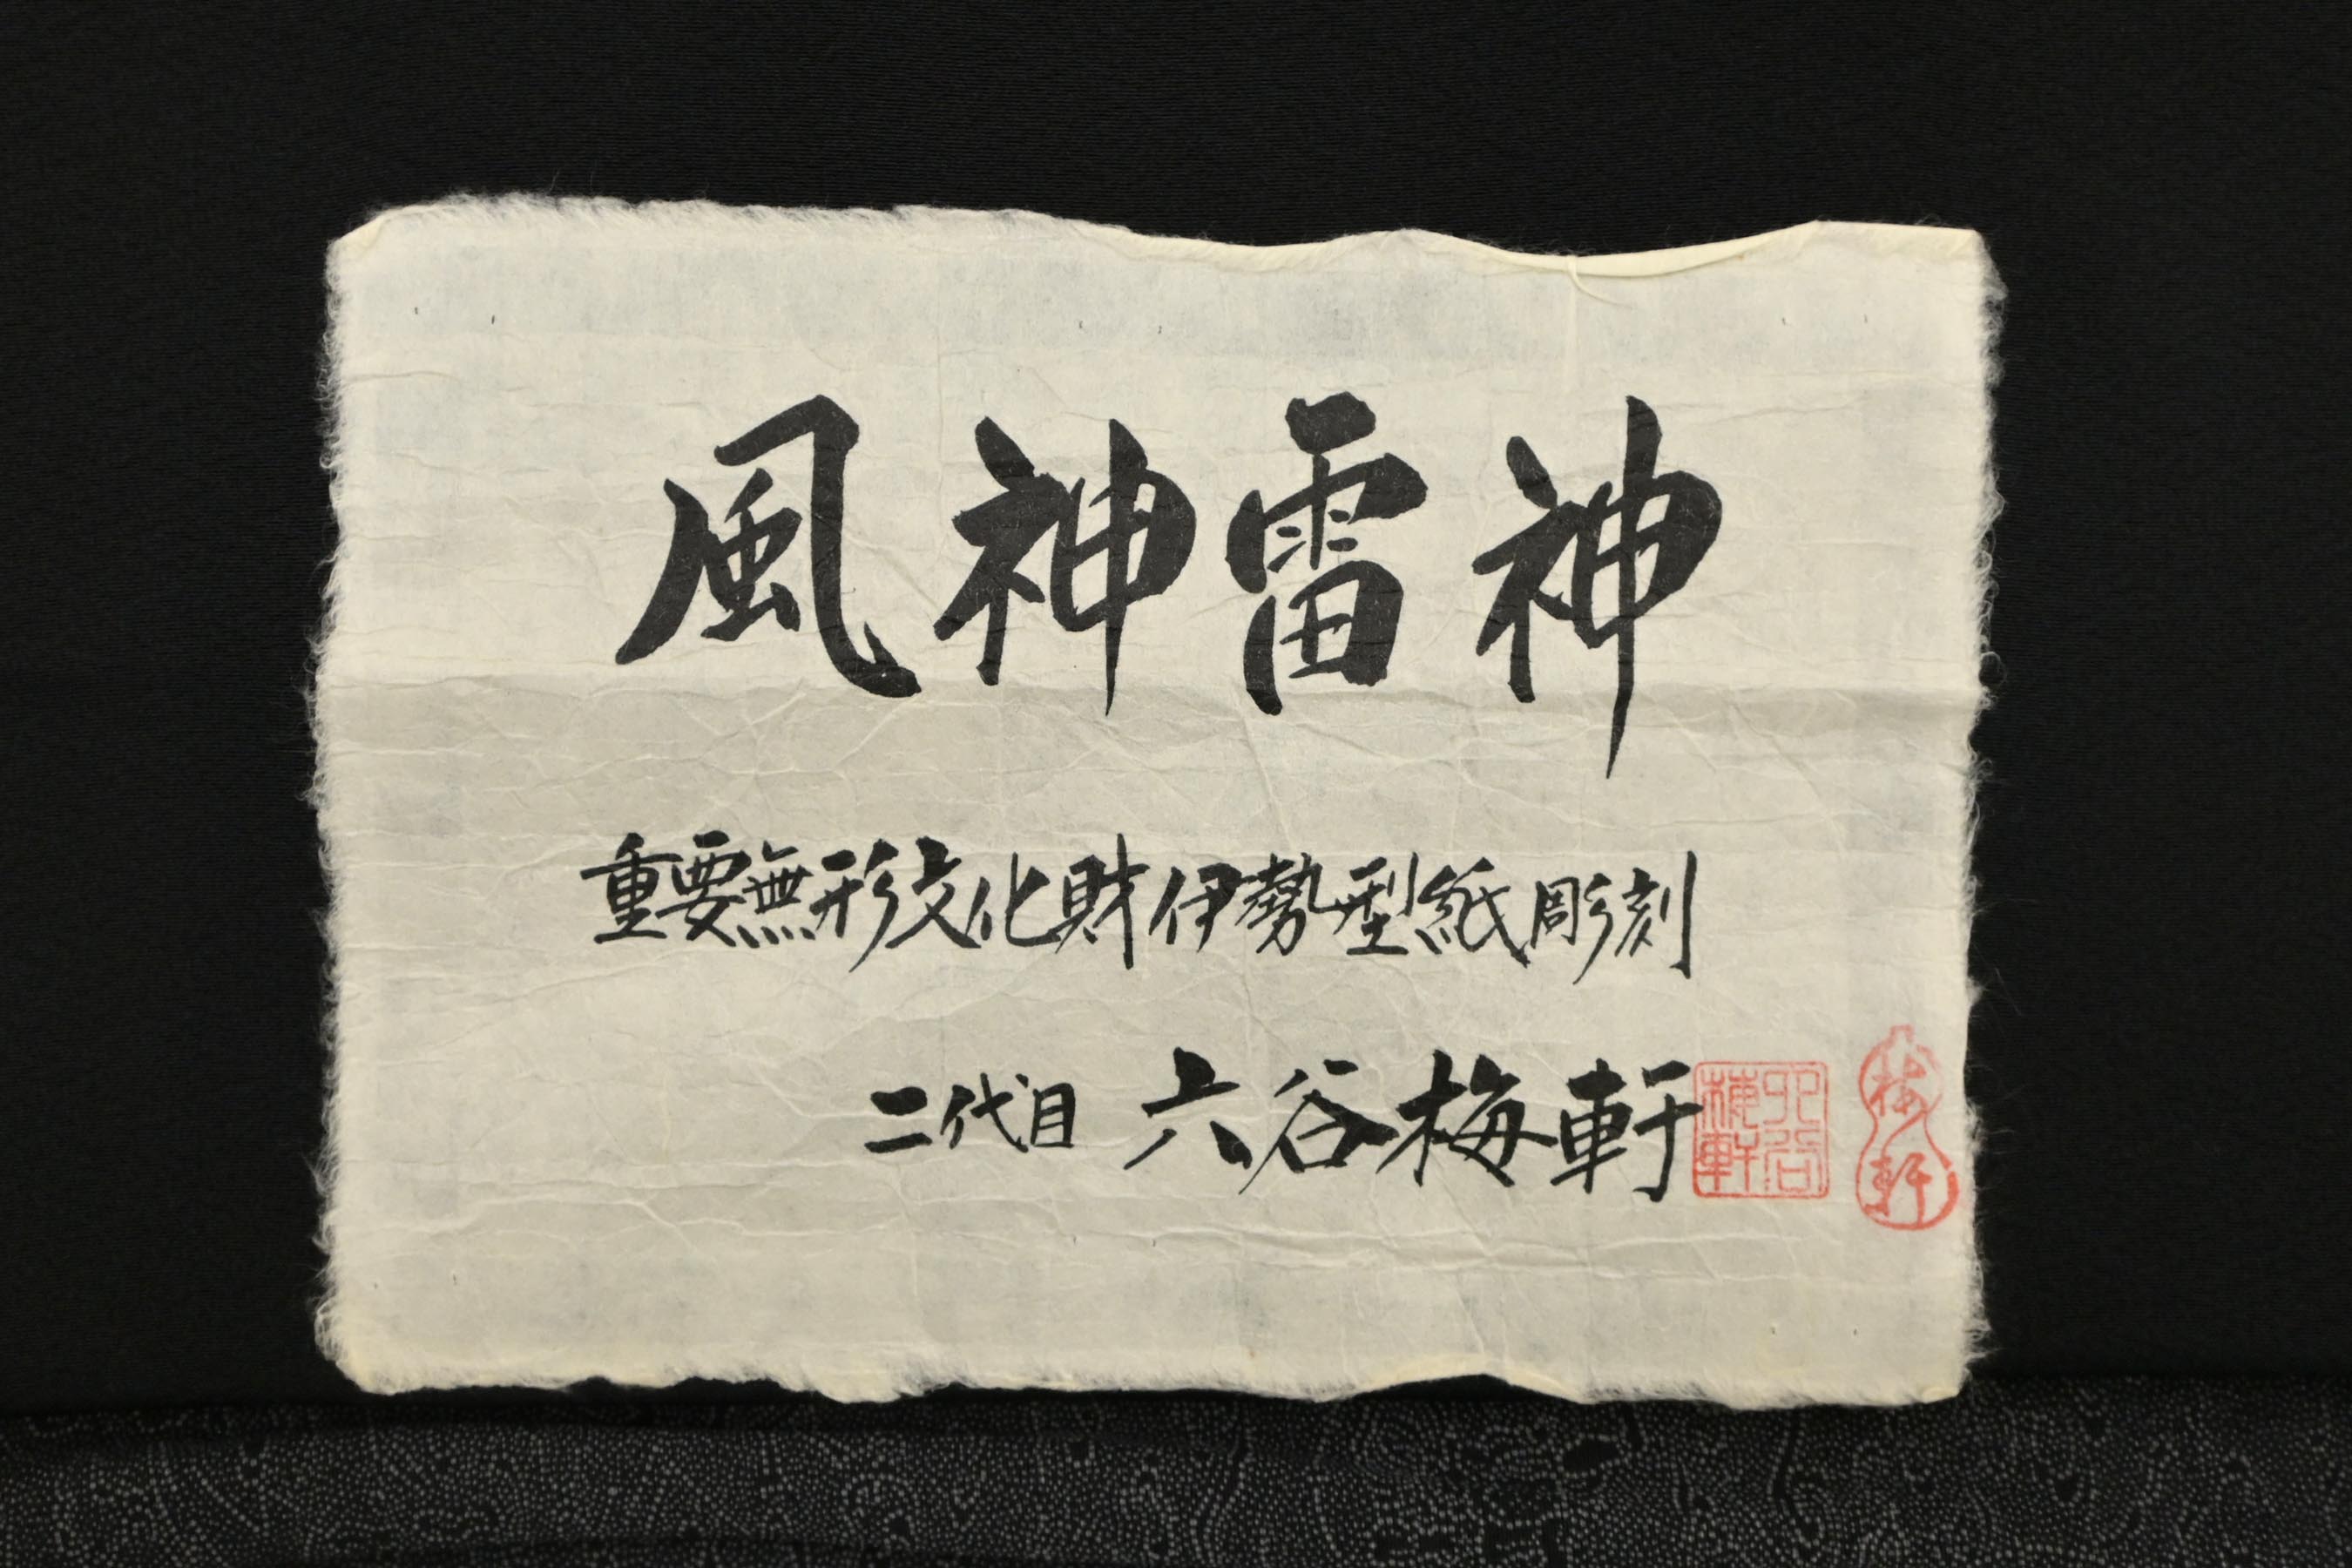 風神雷神
重要無形文化財伊勢型紙彫刻
二代目 六谷梅軒
六谷梅軒
梅軒